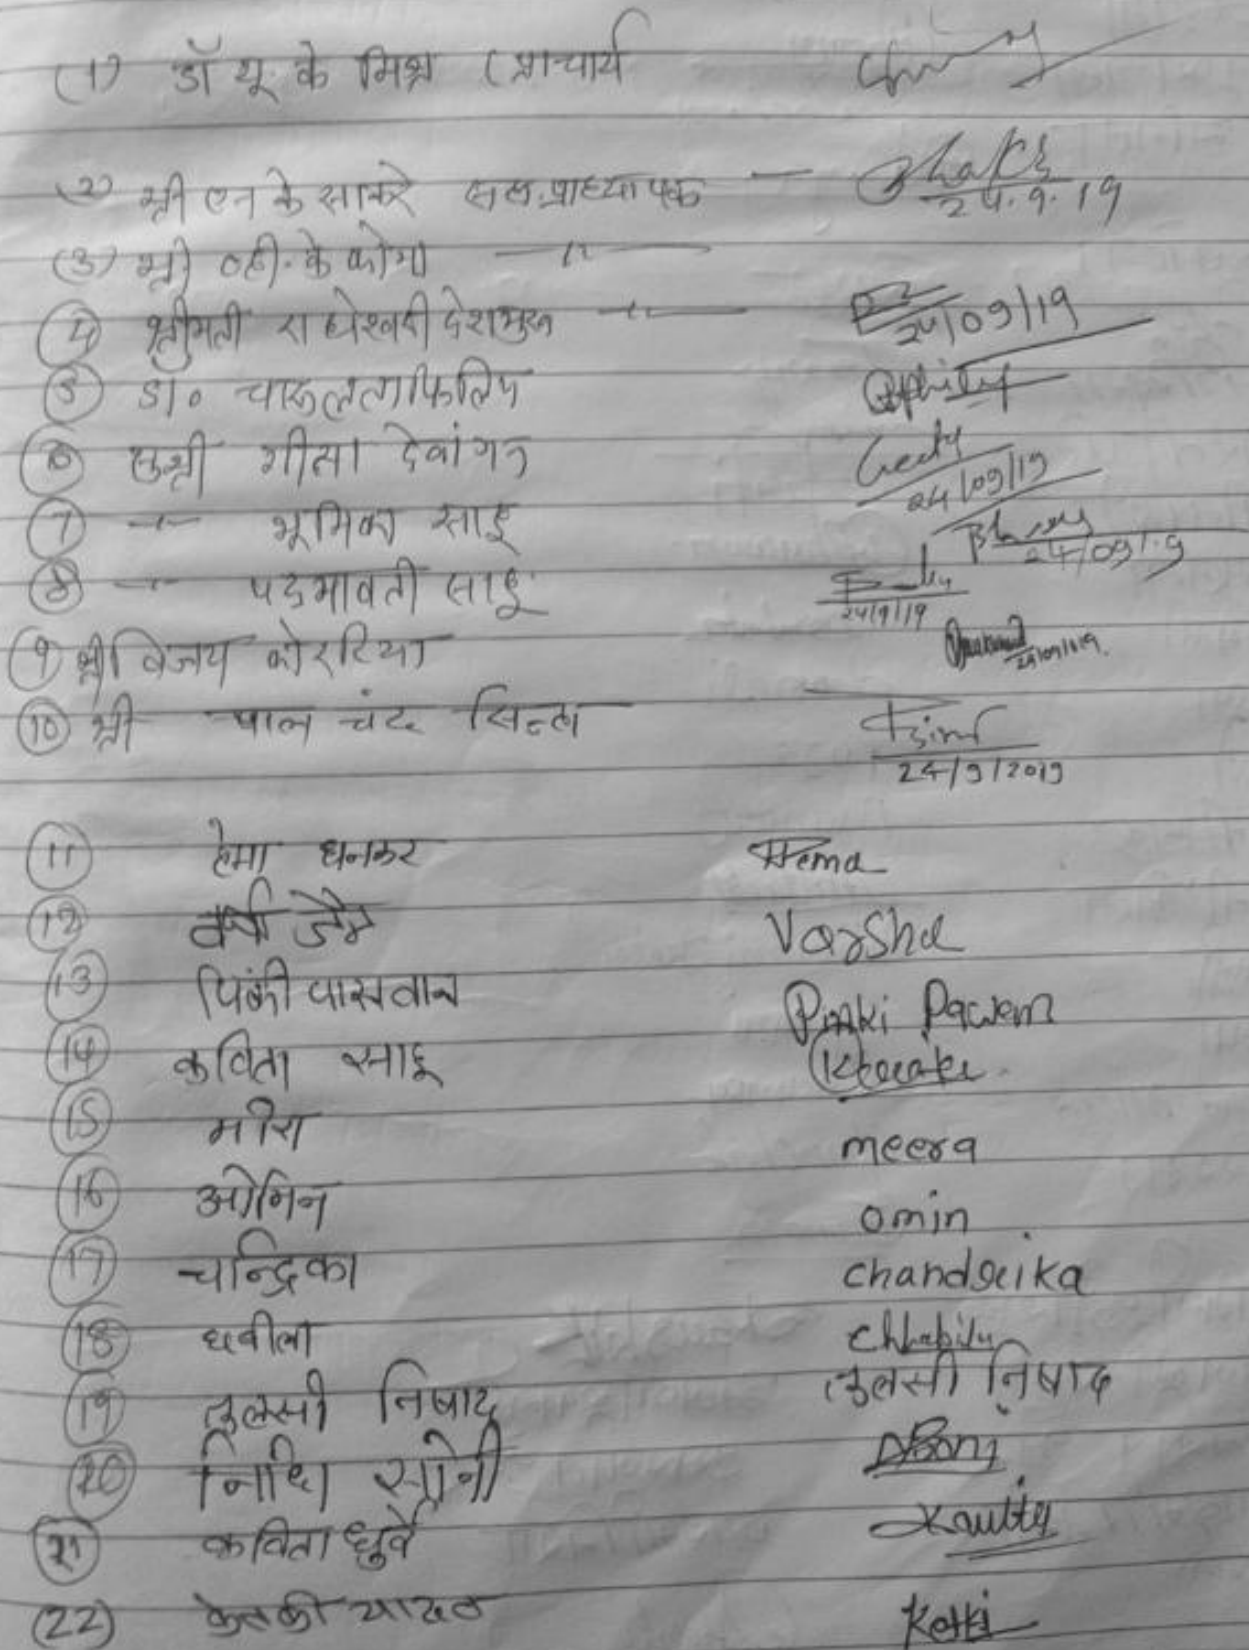 (1) डॉ यू. के मिश्र (प्राचार्य
(2) श्री एन के साकरे सहा.प्राध्यापक — 24.9.19
(3) श्री व्ही. के कोमा —〃—
(4) श्रीमती देशमुख —〃— 24/09/19
(5) डा० चारूलता फिलिप
(6) सुश्री गीता देवांगन Geeta 24/09/19
(7) —〃— भूमिका साहू 24/09/19
(8) —〃— पदमावती साहू 24/9/19
(9) श्री विजय कोरटिया 24/09/19.
(10) श्री पाल चंद सिन्हा 24/9/2019
(11) हेमा धनकर Hema
(12) वर्षा जैन Varsha
(13) पिंकी पासवान Pinki
(14) कविता साहू
(15) मीरा meera
(16) ओमिन omin
(17) चन्द्रिका chandrika
(18) छबीला
(19) तुलसी निषाद तुलसी निषाद
(20) निधि सोनी NSoni
(21) कविता धुर्वे
(22) केतकी यादव Ketki